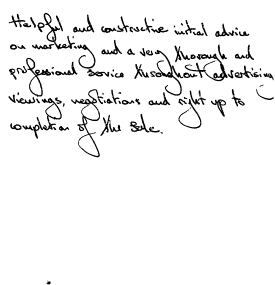 Helpful and constructive initial advice
on marketing and a very thorough and
professional service throughout advertising,
viewings, negotiations and right up to
completion of the sale.